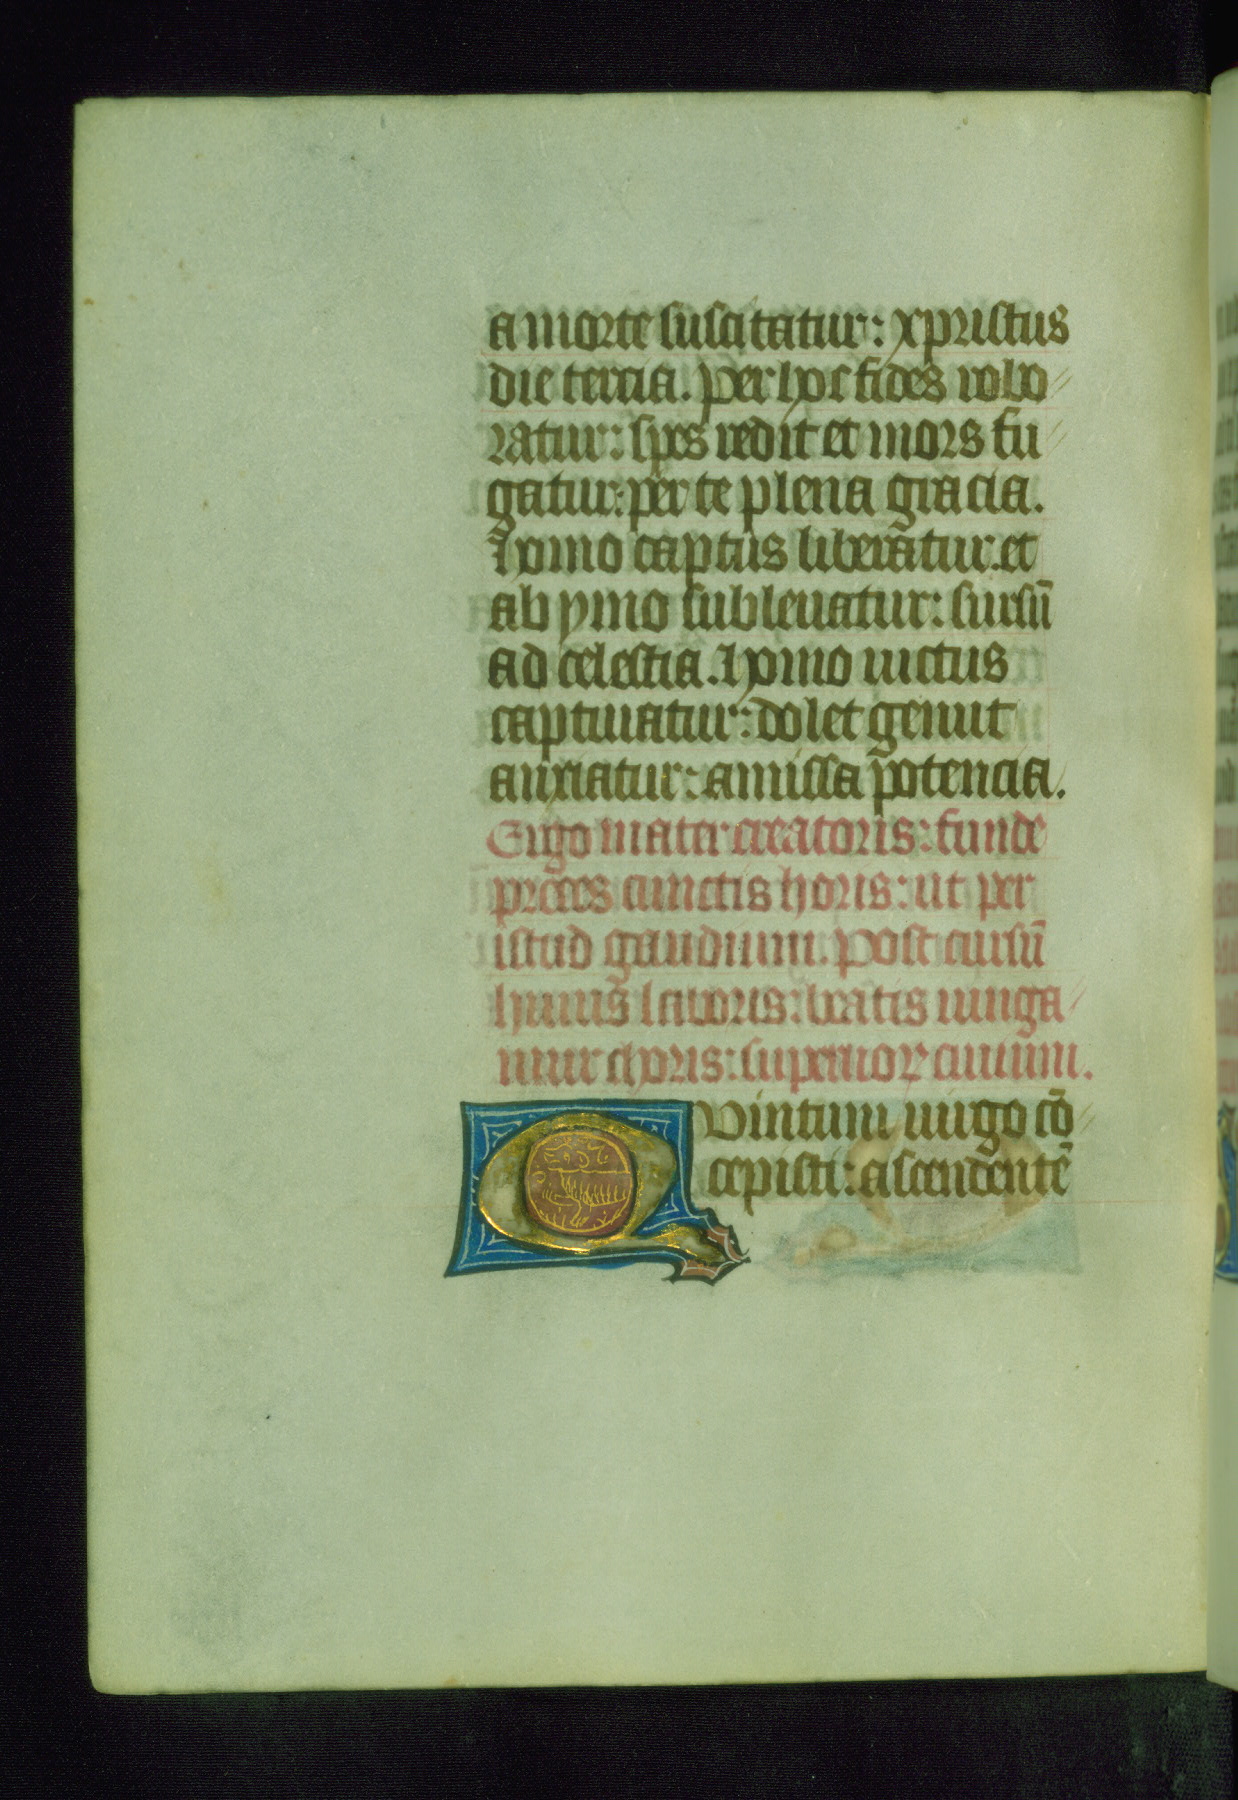 a morte suscitatur: xpristus
die tercia. Per hoc fides robo
ratur: spes redit et mors fu
gatur: per te plena gracia.
Homo captus liberatur. et
ab ymo subleuatur: sursū
ad celestia. Homo uictus
captiuatur: dolet gemit
anxiatur: amissa potencia.
Ergo mater creatoris: funde
preces cunctis horis: ut per
istud gaudium. Post cursū
huius laboris: beatis iunga
mur choris: superiorꝝ ciuium.
Quintum uirgo cō
cepisti: ascendentē